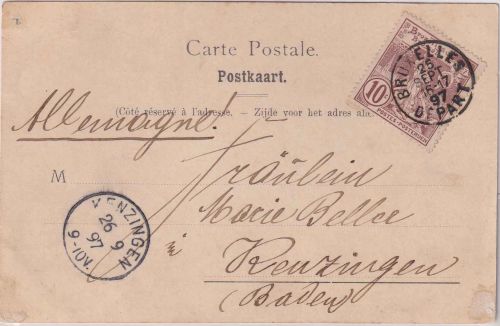 Carte Postale.
Postkaart.
(Côté réservé à l'adresse. — Zijde voor het adres
BRUXELLES
DEPART
97
10
POSTES-POSTERIJEN
Allemagne!
M
Fräulein
Marie Beller
in
Kenzingen
(Baden)
KENZINGEN
26 9
97
9-10V.